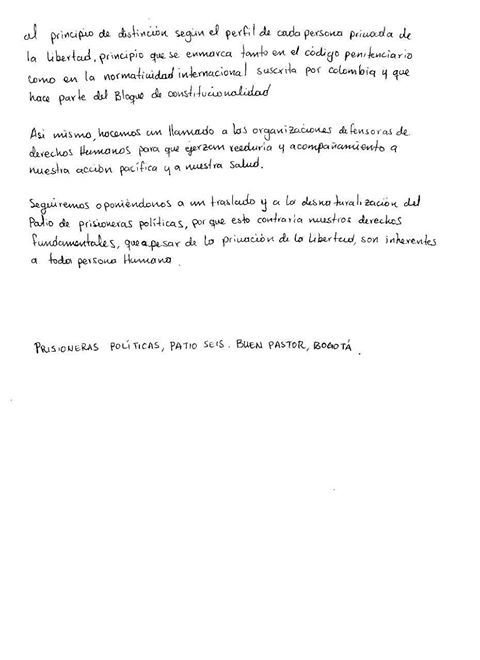 al principio de distinción según el perfil de cada persona privada de
la libertad, principio que se enmarca tanto en el código penitenciario
como en la normatividad internacional suscrita por colombia y que
hace parte del Bloque de constitucionalidad
Asi mismo, hacemos un llamado a las organizaciones defensoras de
derechos Humanos para que ejerzan veeduría y acompañamiento a
nuestra acción pacífica y a nuestra salud.
Seguiremos oponiéndonos a un traslado y a la desnaturalización del
Patio de prisioneras políticas, por que esto contraría nuestros derechos
fundamentales, que a pesar de la privación de la libertad, son inherentes
a toda persona Humana.
PRISIONERAS POLÍTICAS, PATIO SEIS. BUEN PASTOR, BOGOTÁ.